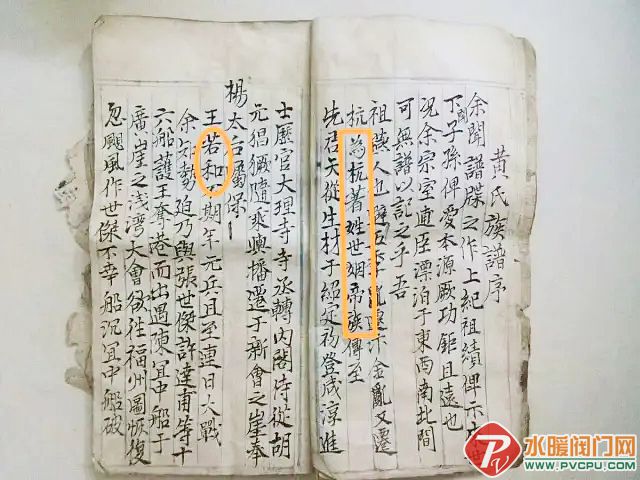 黃氏族譜序
余聞譜牒之作上紀祖績俾示
下子孫俾愛本源厥功鉅且遠也
况余宗室逋臣漂泊于東西南北間
可無譜以記之乎吾
祖燕人也避五季亂汴金亂又遷
杭為杭著姓世姻帝族傳至
先君天從生材于紹定初登咸淳進
士歷官大理寺寺丞轉內閣侍從胡
元猖獗隨乘輿播遷于新會之崖奉
楊太后屬保
王若和期年元兵且至連日大戰
余知勢迫乃與張世傑許達甫等十
六船護王奪港而出遇陳宜中船于
廣崖之浅灣大會欲往福州圖恢復
忽颶風作世傑不幸船沉宜中船破
水暖阀门网
WWW.PVCPU.COM